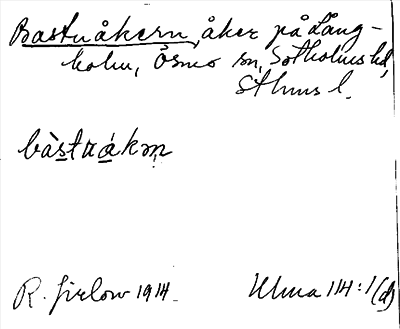 Bastuåkern, åker på Lång-
holm, Ösmo sn, Sotholms hd,
Sthms l.
bàstuákm̥
R. Jirlow 1914.
Ulma 114:1(d)